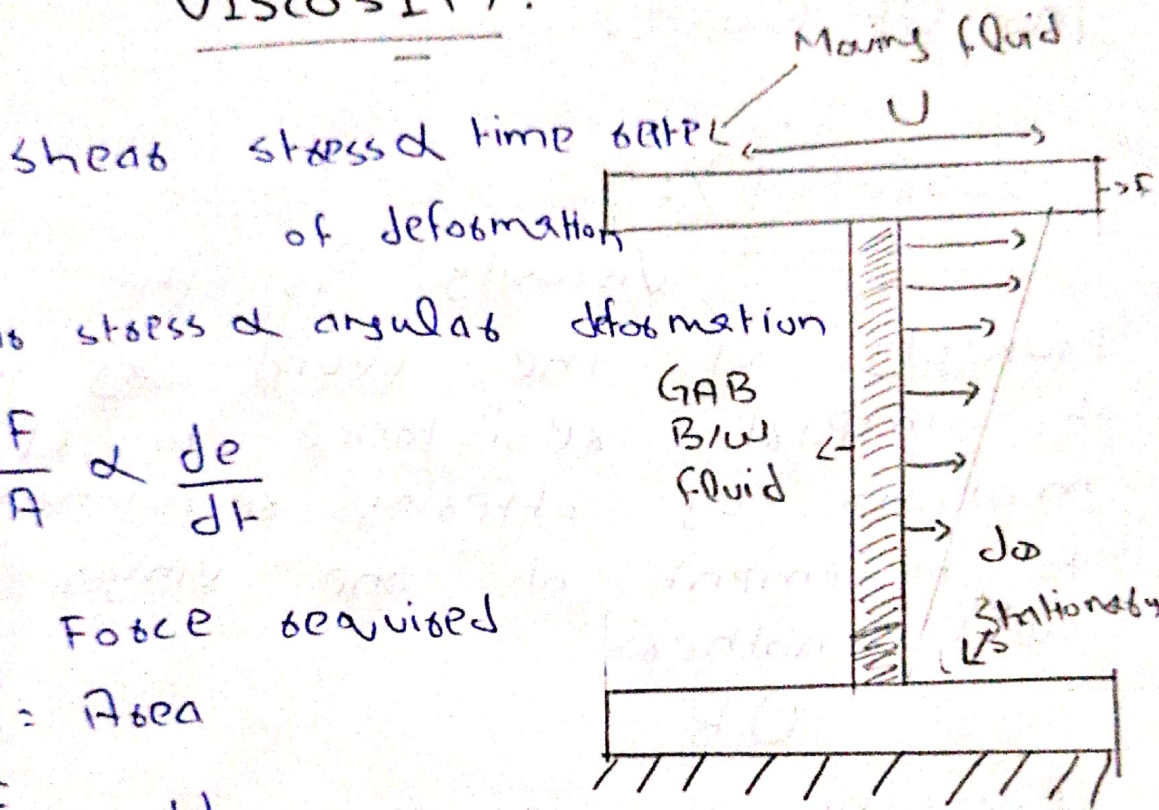 VISCOSITY.
Moving fluid
U
shear stress α time rate
of deformation
→F
stress α angular deformation
GAB
B/w
fluid
F/A α de/dt
dθ
Stationary
Force required
= Area